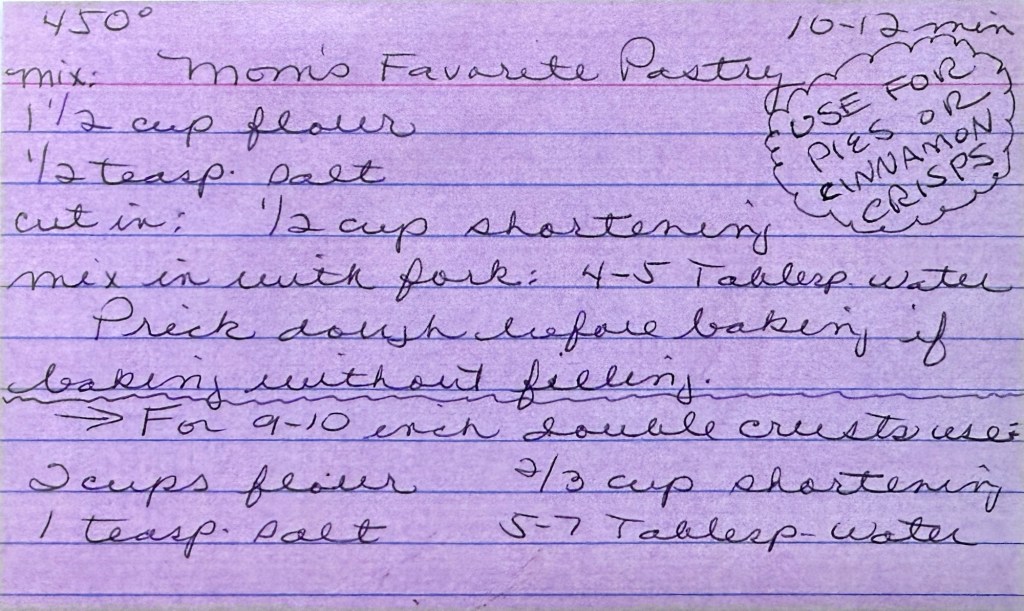 450° 10-12 min
mix: Mom's Favorite Pastry
1 1/2 cup flour
1/2 teasp. salt
cut in: 1/2 cup shortening
mix in with fork: 4-5 Tablesp. water
Prick dough before baking if
baking without filling.
→ For 9-10 inch double crusts use:
2 cups flour 2/3 cup shortening
1 teasp. salt 5-7 Tablesp- water
USE FOR
PIES OR
CINNAMON
CRISPS